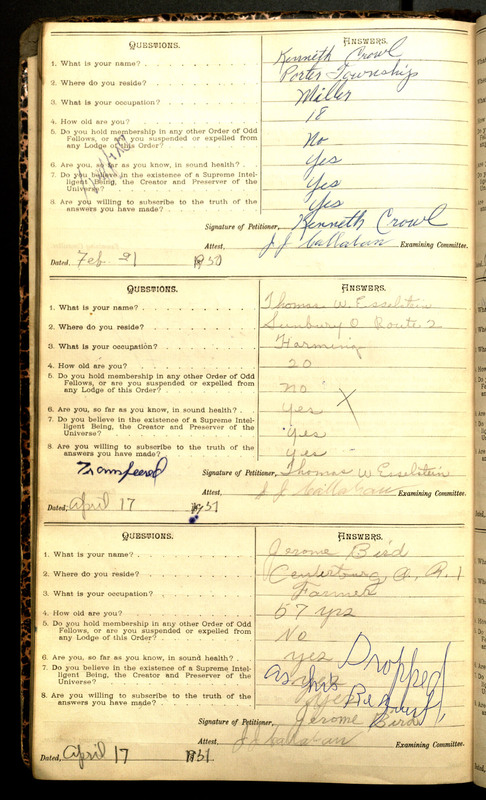 QUESTIONS. ANSWERS.
1. What is your name? Kenneth Crowl
2. Where do you reside? Porter Township
3. What is your occupation? Miller
4. How old are you? 18
5. Do you hold membership in any other Order of Odd
Fellows, or are you suspended or expelled from
any Lodge of this Order? No
6. Are you, so far as you know, in sound health? Yes
7. Do you believe in the existence of a Supreme Intel-
ligent Being, the Creator and Preserver of the
Universe? Yes
8. Are you willing to subscribe to the truth of the
answers you have made? Yes
Signature of Petitioner, Kenneth Crowl
Attest, J J Callahan Examining Committee.
Dated, Feb 21
QUESTIONS. ANSWERS.
1. What is your name? Thomas W. Esselstein
2. Where do you reside? Sunbury O Route 2
3. What is your occupation? Farming
4. How old are you? 20
5. Do you hold membership in any other Order of Odd
Fellows, or are you suspended or expelled from
any Lodge of this Order? no
6. Are you, so far as you know, in sound health? yes X
7. Do you believe in the existence of a Supreme Intel-
ligent Being, the Creator and Preserver of the
Universe? yes
8. Are you willing to subscribe to the truth of the
answers you have made? yes
Transfeered Signature of Petitioner, Thomas W Esselstein
Attest, J J Callahan Examining Committee.
Dated, april 17 1931
QUESTIONS. ANSWERS.
1. What is your name? Jerome Bird
2. Where do you reside? Centerburg O, R, 1
3. What is your occupation? Farmer
4. How old are you? 57 yrs
5. Do you hold membership in any other Order of Odd
Fellows, or are you suspended or expelled from
any Lodge of this Order? No
6. Are you, so far as you know, in sound health? yes Dropped
7. Do you believe in the existence of a Supreme Intel-
ligent Being, the Creator and Preserver of the
Universe? yes as his Request,
8. Are you willing to subscribe to the truth of the
answers you have made? yes
Signature of Petitioner, Jerome Bird
Attest, J J Callahan Examining Committee.
Dated, april 17 1931